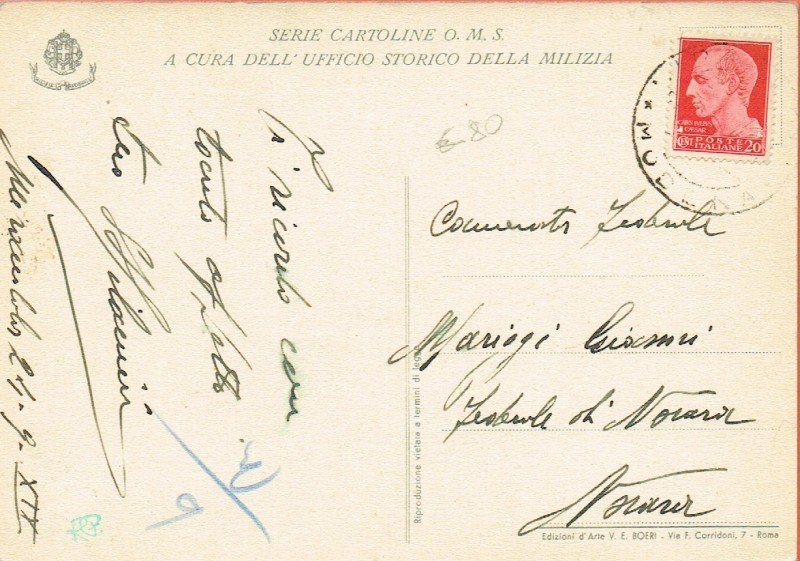 SERIE CARTOLINE O. M. S.
A CURA DELL'UFFICIO STORICO DELLA MILIZIA
Ti ricordo con
tanto affetto
tuo
24-9-XIV
R.P.
9
80
CAIUS IULIUS
CAESAR
CENT POSTE ITALIANE 20
MODENA
Camerata Federale
Mariggi Giovanni
Federale di Novara
Novara
Riproduzione vietata a termini di legge
Edizioni d'Arte V. E. BOERI - Via F. Corridoni, 7 - Roma